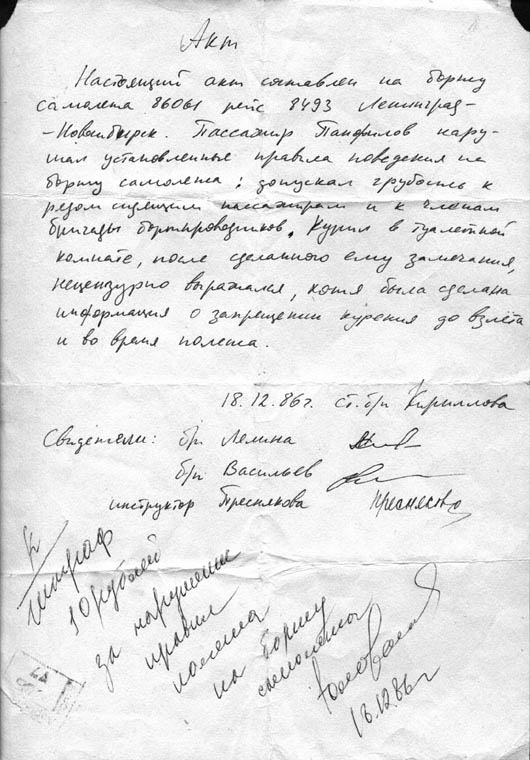 Акт
Настоящий акт составлен на борту
самолета 86061 рейс 8493 Ленинград-
-Новосибирск. Пассажир Панфилов нару-
шал установленные правила поведения на
борту самолета: допускал грубость к
рядом сидящим пассажирам и к членам
бригады бортпроводников. Курил в туалетной
комнате, после сделанного ему замечания,
нецензурно выражался, хотя была сделана
информация о запрещении курения до взлёта
и во время полета.
18.12.86г. ст. б/п Кириллова
Свидетели: б/п Лелина
б/п Васильев
инструктор Преснякова
штраф
10 рублей
за нарушение
правил
полета
на борту
самолета
18.12.86г